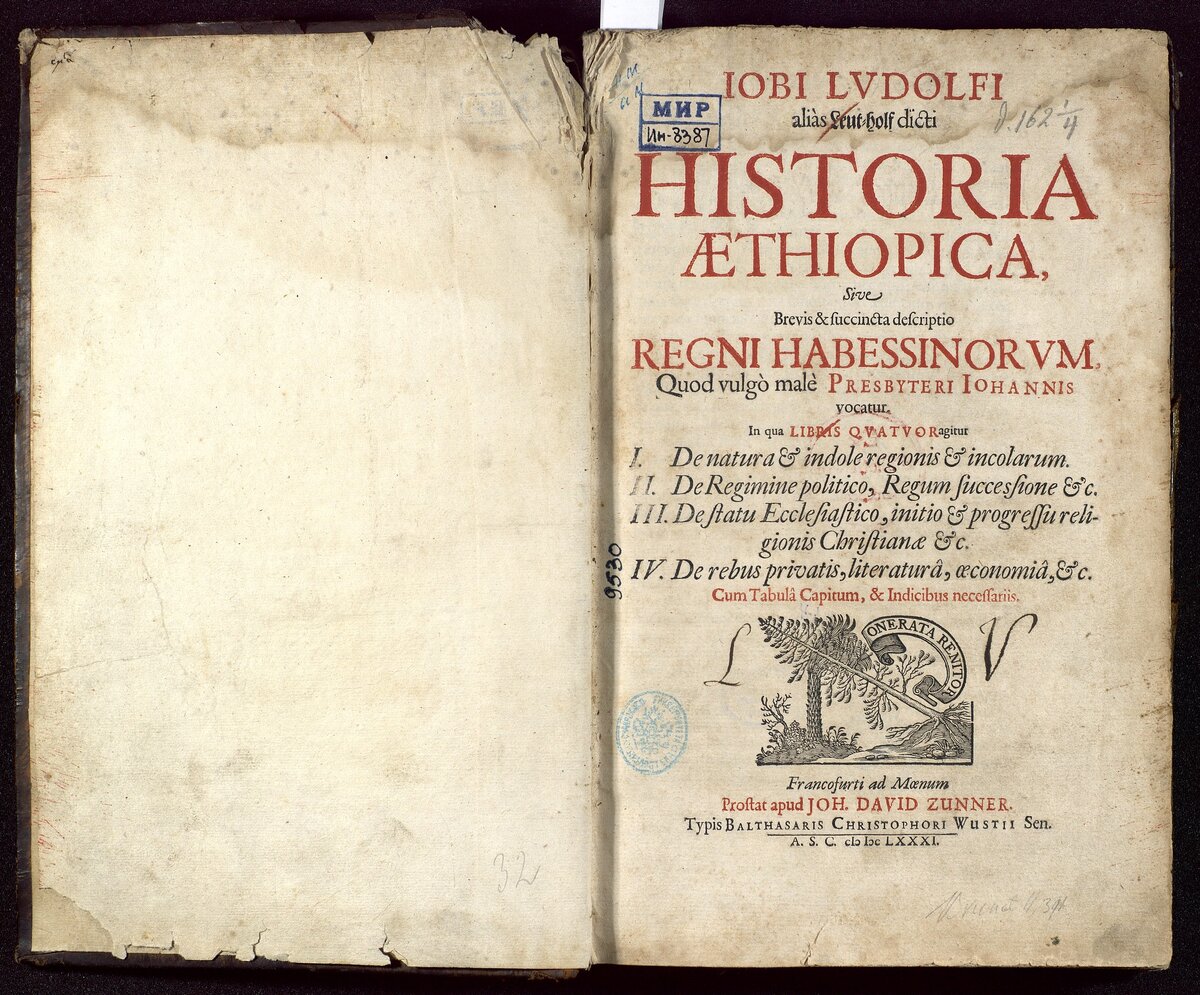 IOBI LVDOLFI
aliàs Leut-holf dicti
МИР
Ин-8387
HISTORIA
ÆTHIOPICA,
Sive
Brevis & ſuccincta deſcriptio
REGNI HABESSINORVM,
Quod vulgò malè PRESBYTERI IOHANNIS
vocatur.
In qua LIBRIS QVATVOR agitur
I. De natura & indole regionis & incolarum.
II. De Regimine politico, Regum ſucceſſione &c.
III. De ſtatu Eccleſiaſtico, initio & progreſſu reli-
gionis Chriſtianæ &c.
IV. De rebus privatis, literaturâ, œconomiâ, &c.
Cum Tabulâ Capitum, & Indicibus neceſſariis.
9530
L V
ONERATA RENITOR
Francofurti ad Mœnum
Proſtat apud JOH. DAVID ZUNNER.
Typis BALTHASARIS CHRISTOPHORI WUSTII Sen.
A. S. C. cIɔ Iɔc LXXXI.
32